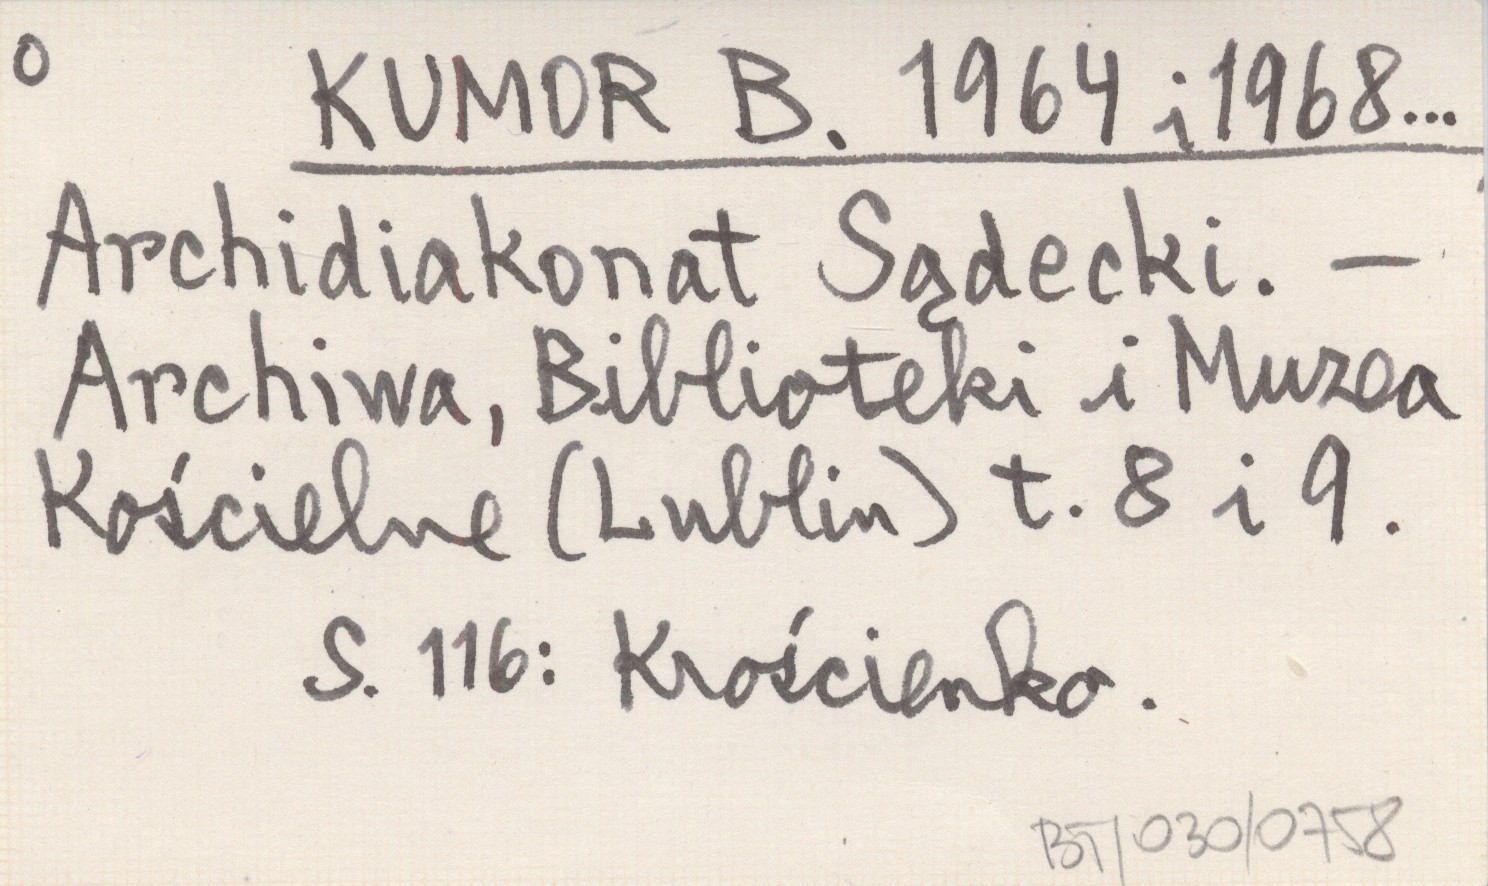 o KUMOR B. 1964 i 1968...
Archidiakonat Sądecki. —
Archiwa, Biblioteki i Muzea
Kościelne (Lublin) t. 8 i 9.
S. 116: Krościenko.
BT/030/0758